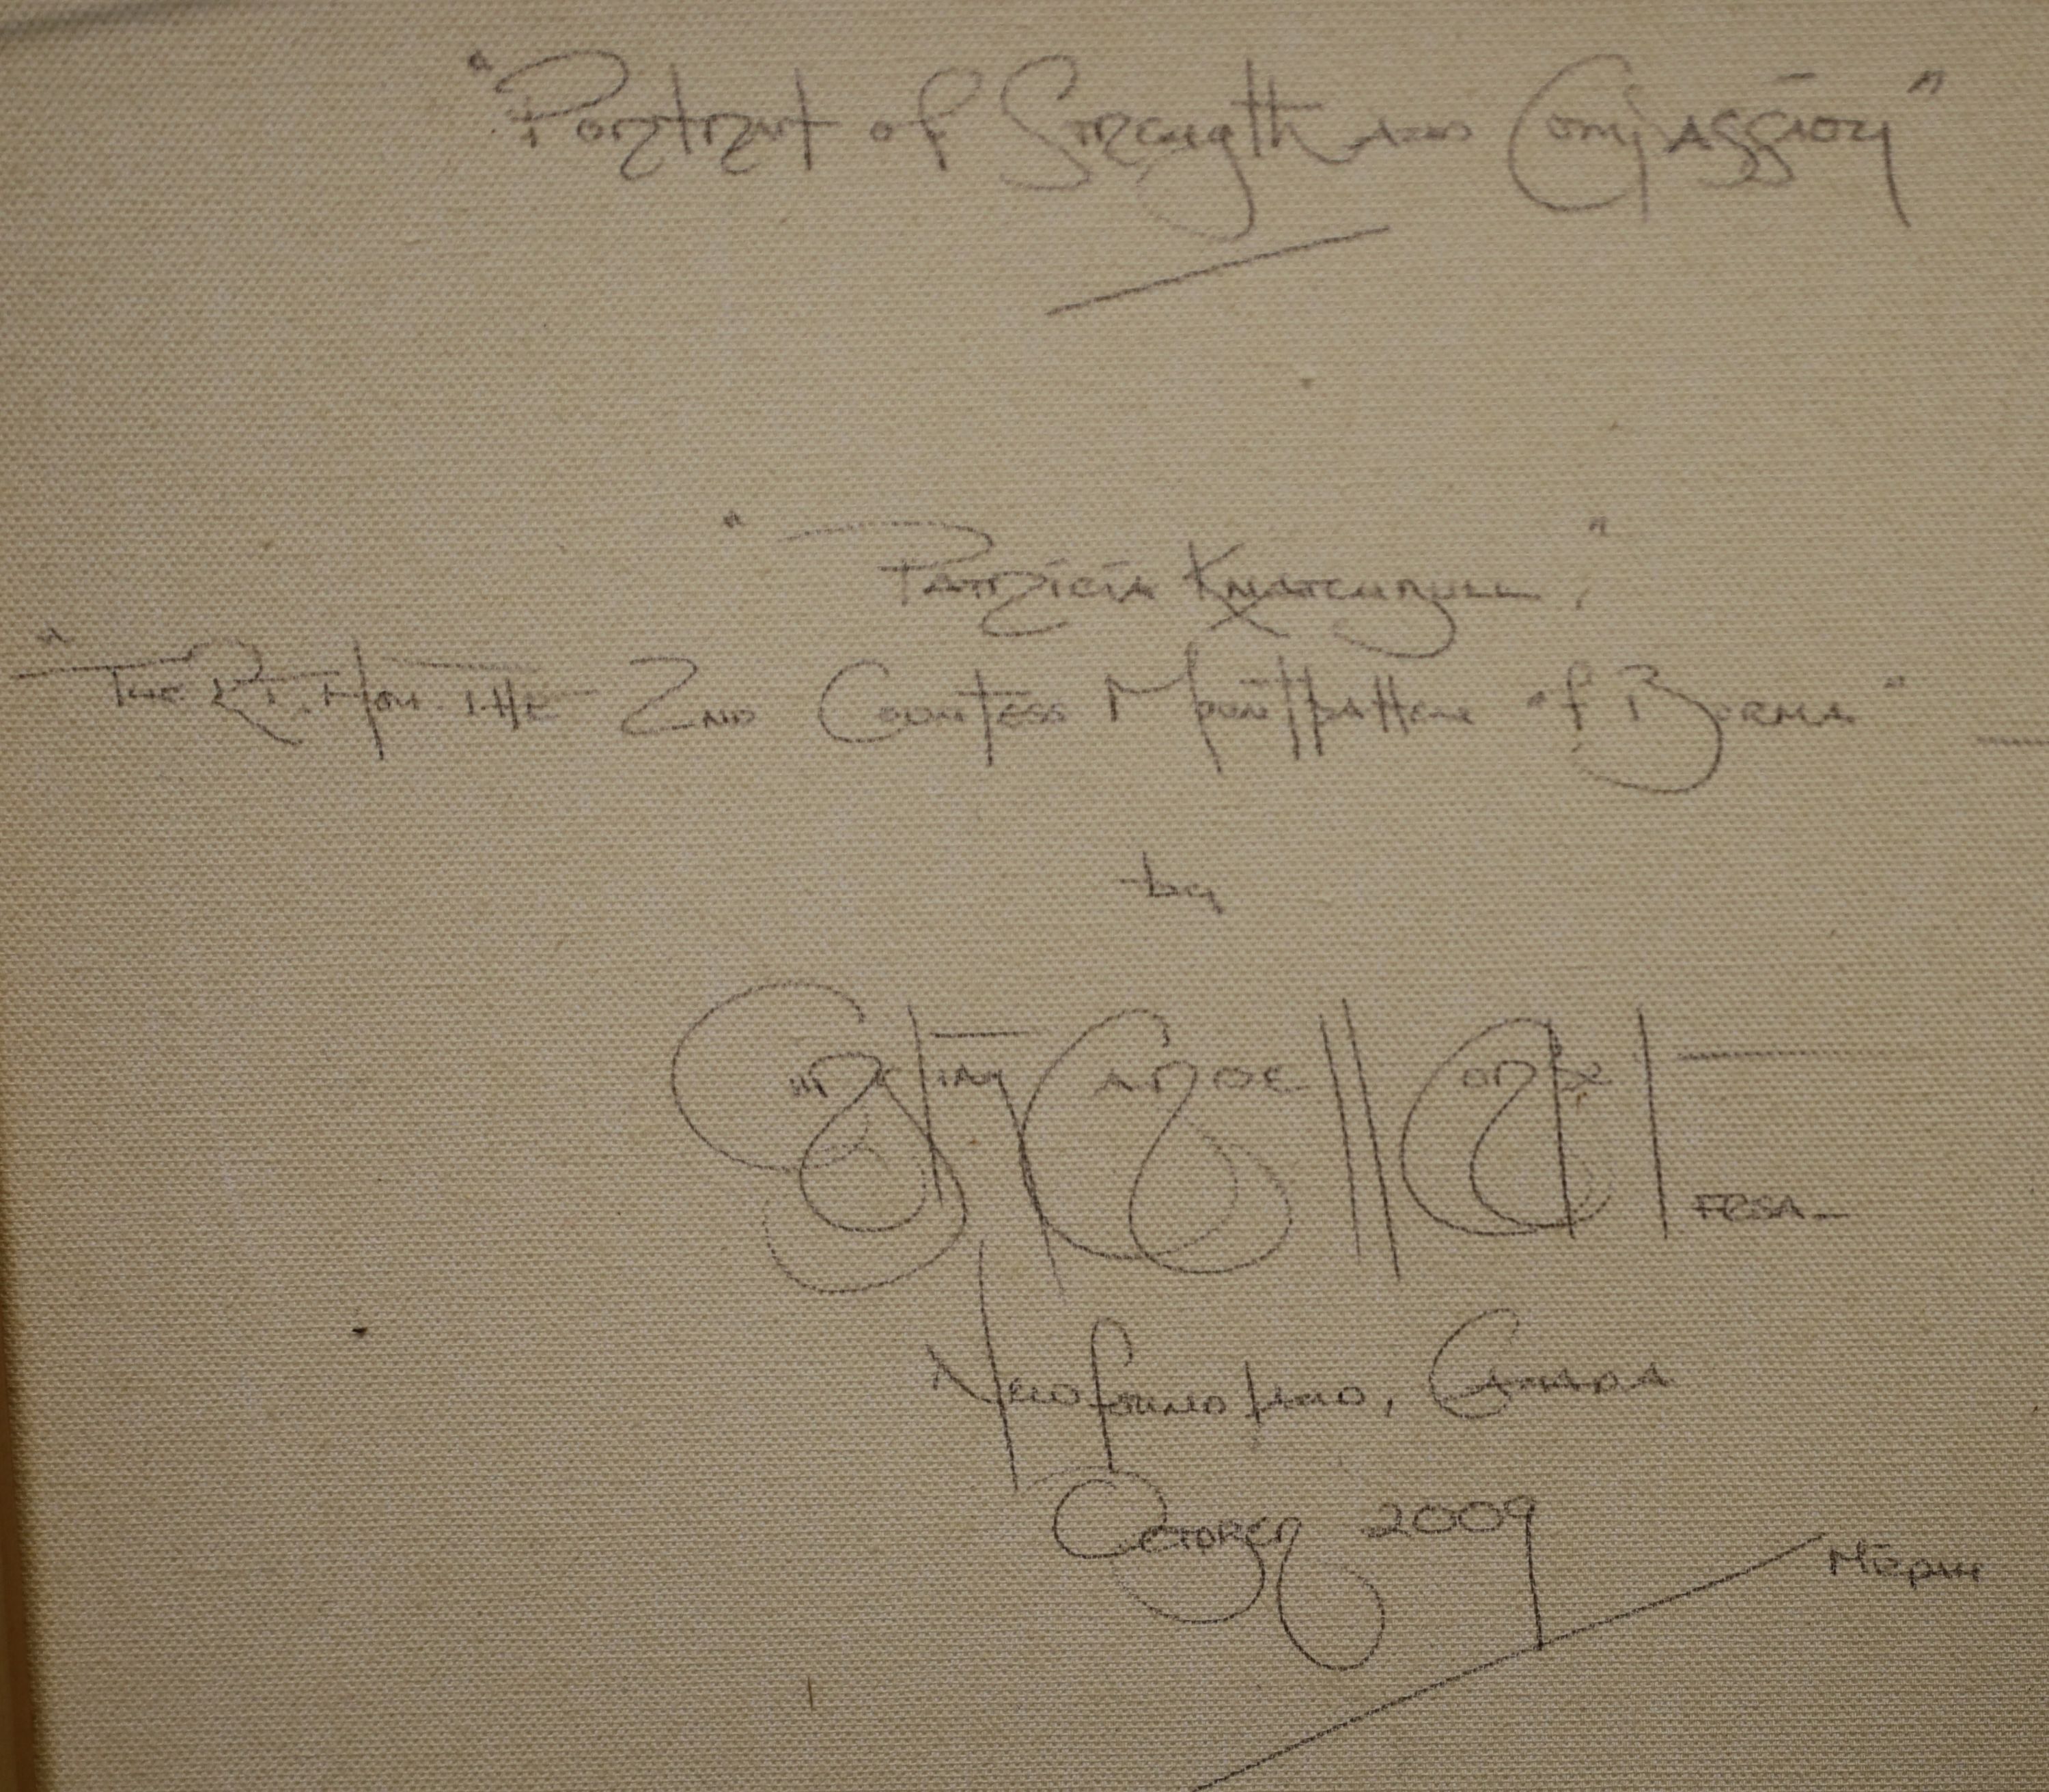 "Portrait of Strength and Compassion"
"Patricia Knatchbull",
"The Rt. Hon. The 2nd Countess Mountbatten of Burma"
by
Christian Corbet
FRSA
Newfoundland, Canada
October 2009